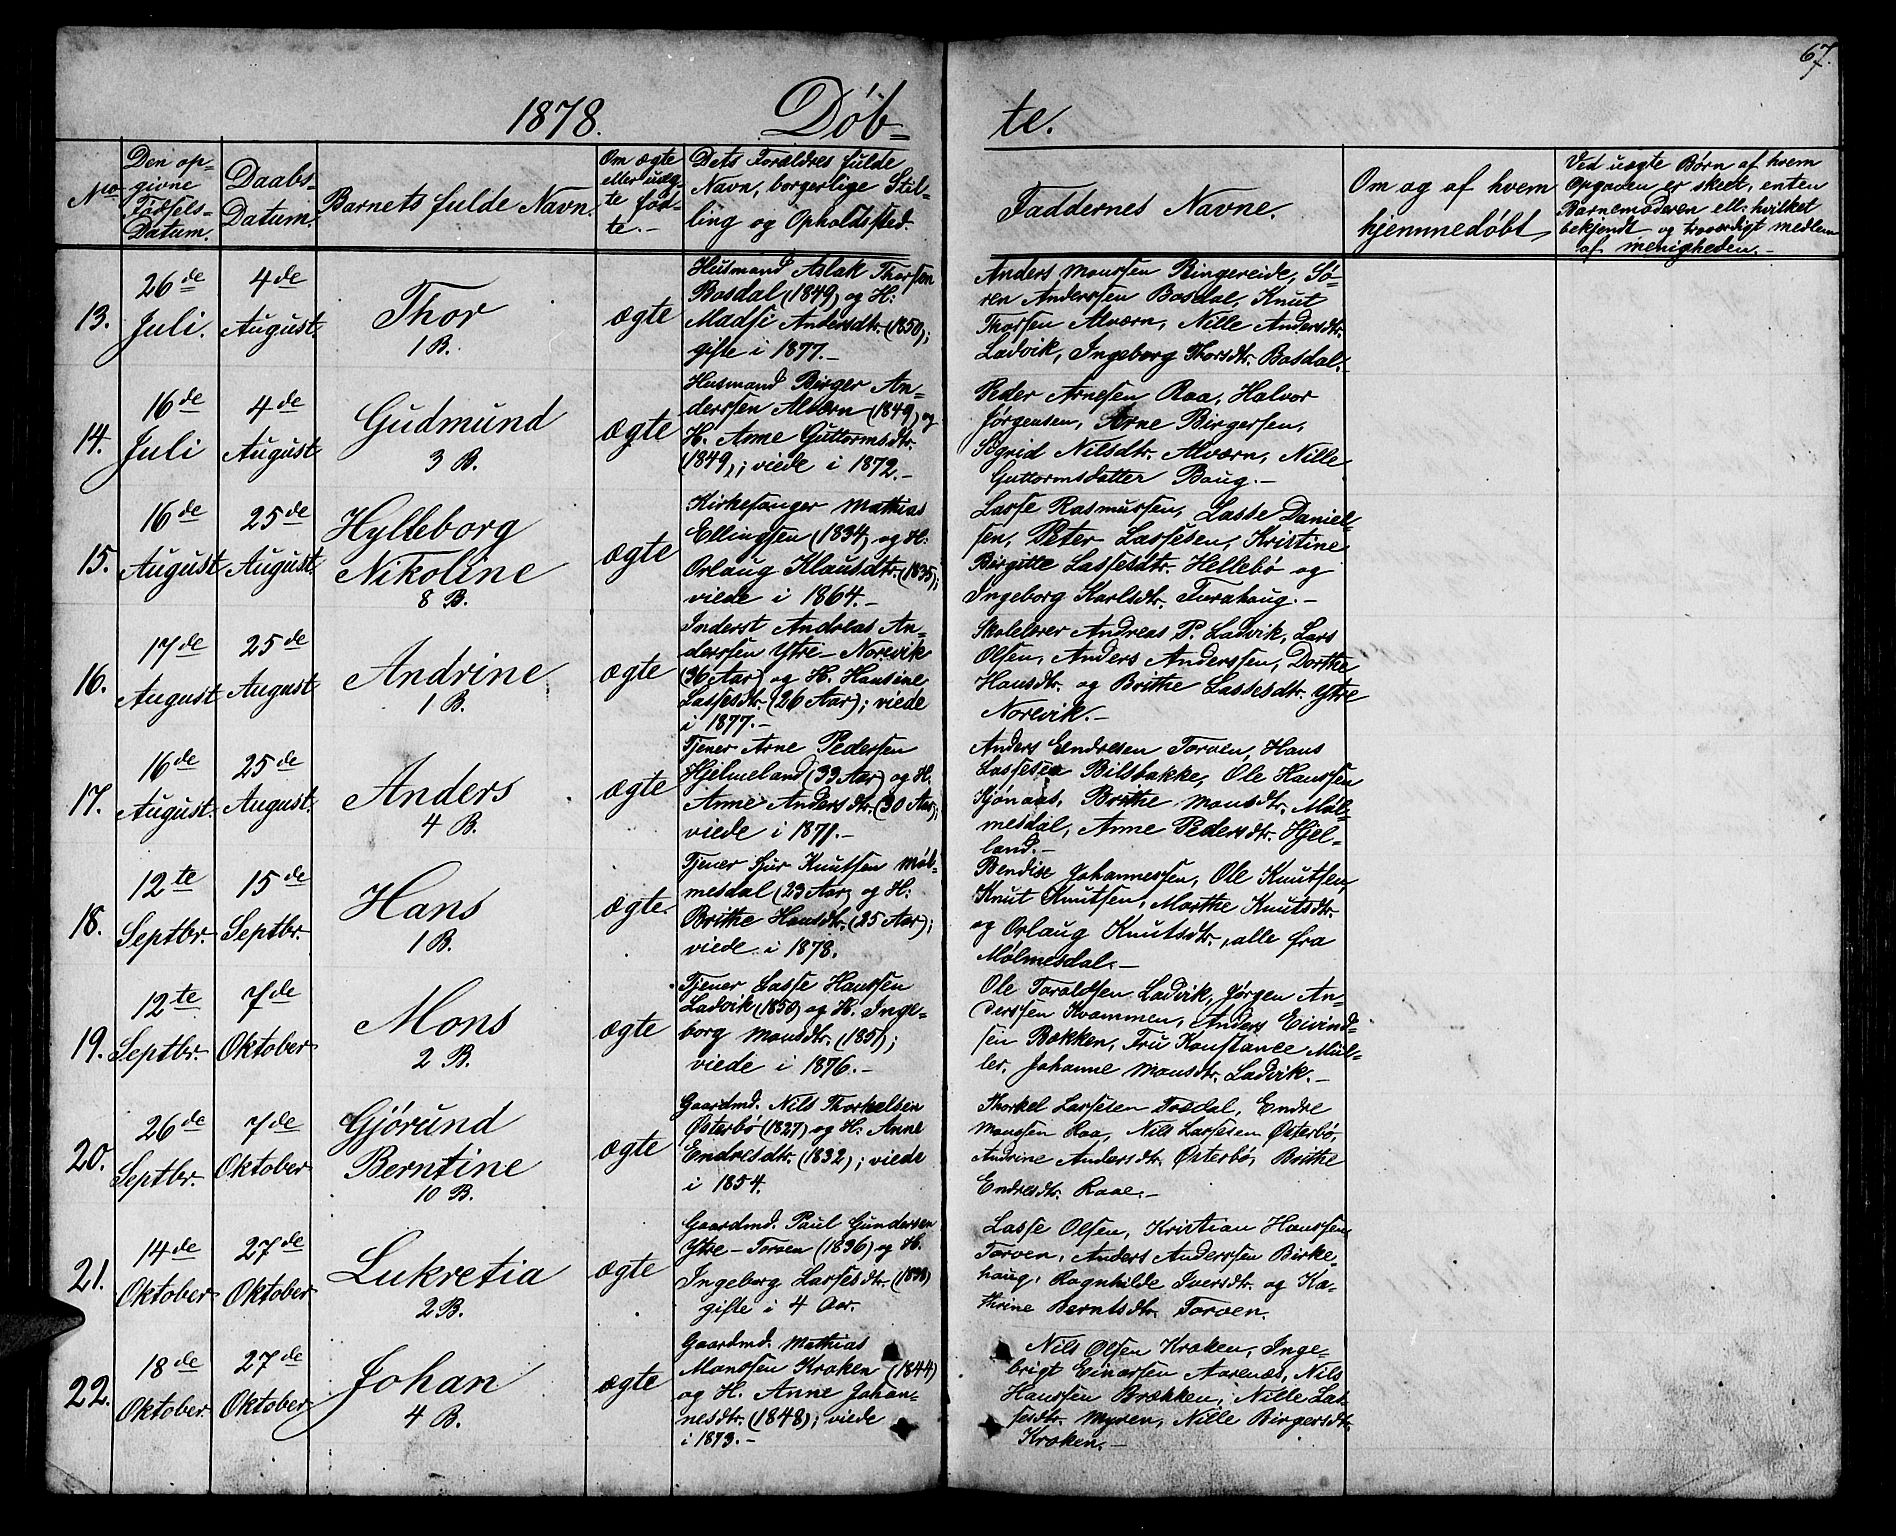 67.
1878. Døb-
te.
No
Den op-
givne
Fødsels-
Datum.
Daabs-
Datum.
Barnets fulde Navn.
Om ægte
eller uæg-
te fød-
te.-
Dets Forældres fulde
Navn, borgerlige Stil-
ling og Opholdssted.
Faddernes Navne.
Om og af hvem
hjemmedøbt
Ved uægte Børn af hvem
Opgaven er skeet, enten
Barnemoderen ell: hvilket
bekjendt og troværdigt medlem
af menigheden.-
13.
26de
Juli.
4de
August.
Thor
1 B.
ægte
Husmand Aslak Thorsen
Bosdal (1849) og H:
Madsi Andersdtr. (1850);
gifte i 1877.-
Anders Monssen Ringereide, Sø-
ren Anderssen Bosdal, Knut
Thorsen Alværn, Nille Andersdtr.
Ladvik, Ingeborg Thorsdtr. Bosdal.
14.
16de
Juli
4de
August
Gudmund
3 B.
ægte
Husmand Birger An-
derssen Alværn (1849) og
H. Anne Guttormsdtr.
(1849); viede i 1872.-
Peder Arnesen Raa, Halvor
Jørgensen, Arne Birgersen,
Sigrid Nilsdtr. Alværn, Nille
Guttormsdatter Boug.-
15.
16de
August
25de
August.
Hylleborg
Nikoline
8 B.
ægte
Kirkesanger Mathias
Ellingsen (1834) og H:
Orlaug Klausdtr. (1835);
viede i 1864.-
Lasse Rasmussen, Lasse Daniel-
sen, Peter Lassesen, Kristine
Birgitte Lassesdtr. Hellebø og
Ingeborg Karlsdtr. Furahaug.-
16.
17de
August
25de
August
Andrine
1 B.
ægte
Inderst Andreas An-
derssen Ytre-Norevik
(36 Aar) og H. Hansine
Lassesdtr. (26 Aar); viede
i 1877.-
Skolelærer Andreas P. Ladvik, Lars
Olsen, Anders Anderssen, Dorthe
Hansdtr. og Brithe Lassesdtr. Ytre
Norevik.-
17.
16de
August.
25de
August.
Anders
4 B.
ægte
Tjener Arne Pedersen
Hjelmeland (33 Aar) og H.
Anne Andersdtr. (30 Aar);
viede i 1871.-
Anders Endresen Torven, Hans
Lassesen Bilsbakke, Ole Hanssen
Kjønaas, Brithe Monsdtr. Møl-
mesdal, Anne Pedersdtr. Hjel-
land.-
18.
12te
Septbr.
15de
Septbr.
Hans
1 B.
ægte.
Tjener Sjur Knutsen Møl-
mesdal (23 Aar) og H:
Brithe Hansdtr. (25 Aar);
viede i 1878.
Bendix Johannessen, Ole Knutsen,
Knut Knutsen, Marthe Knutsdtr.
og Orlaug Knutsdtr., alle fra
Mølmesdal.-
19.
12te
Septbr.
7de
Oktober
Mons
2 B.
ægte
Tjener Lasse Hanssen
Ladvik (1850) og H. Inge-
borg Monsdtr. (1851);
viede i 1876.-
Ole Toraldsen Ladvik, Jørgen An-
derssen Kvammen, Anders Eivind-
sen Bakken, Fru Konstance Mül-
ler, Johanne Monsdtr. Ladvik.-
20.
26de
Septbr.
7de
Oktober
Gjørund
Berntine
10 B.
ægte
Gaardmd. Nils Thorkelsen
Østerbø (1827) og H: Anne
Endresdtr. (1832); viede
i 1854.
Thorkel Lassesen Tosdal, Endre
Monssen Raa, Nils Lassesen Østerbø,
Andrine Andersdtr. Østerbø, Brithe
Endresdtr. Raae.-
21.
14de
Oktober
27de
Oktober
Lukretia
2 B.
ægte
Gaardmd. Paul Gundersen
Ytre-Torven (1836) og H.
Ingeborg Lassesdtr.
gifte i 4 Aar.
Lasse Olsen, Kristian Hanssen
Torven, Anders Anderssen Birke-
haug, Ragnhilde Iversdtr. og Ka-
thrine Berntsdtr. Torven.
22.
18de
Oktober
27de
Oktober
Johan
4 B.
ægte
Gaardmd. Mathias
Monssen Kraken (1844)
og H. Anne Johan-
nesdtr. (1848); viede
i 1873.-
Nils Olsen Kraken, Inge-
brigt Einarsen Aarenæs, Nils
Hanssen Brækken, Nille Las-
sesdtr. Myren, Nille Birgersdtr.
Kraken.-